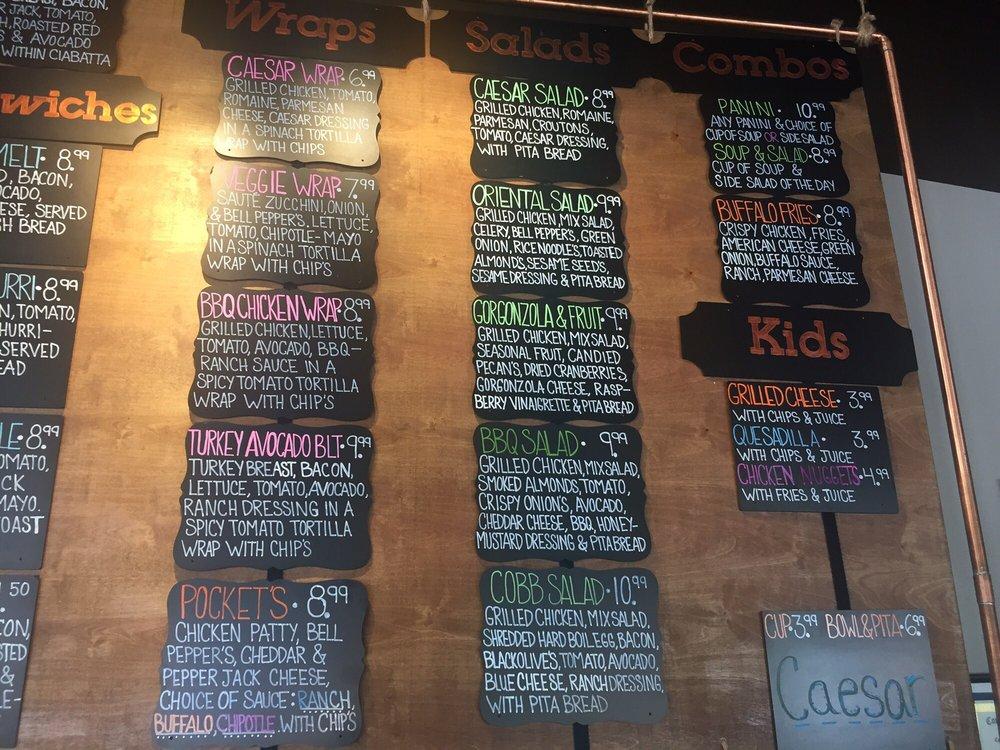 BACON,
R JACK, TOMATO,
, ROASTED RED
S & AVOCADO
WITHIN CIABATTA
wiches
MELT· 8.99
D, BACON,
OCADO,
ESE, SERVED
SH BREAD
URRI·8.99
N, TOMATO,
HURRI-
SERVED
EAD
LE·8.99
OMATO,
CK
MAYO.
OAST
50
CON,
STED
&
LE-
Wraps
CAESAR WRAP·6.99
GRILLED CHICKEN, TOMATO,
ROMAINE, PARMESAN
CHEESE, CAESAR DRESSING
IN A SPINACH TORTILLA
WRAP WITH CHIPS
VEGGIE WRAP·7.99
SAUTÉ ZUCCHINI, ONION,
& BELL PEPPER'S, LETTUCE,
TOMATO, CHIPOTLE-MAYO
IN A SPINACH TORTILLA
WRAP WITH CHIP'S
BBQ CHICKEN WRAP·8.99
GRILLED CHICKEN, LETTUCE,
TOMATO, AVOCADO, BBQ-
RANCH SAUCE IN A
SPICY TOMATO TORTILLA
WRAP WITH CHIP'S
TURKEY AVOCADO BLT·9.99
TURKEY BREAST, BACON,
LETTUCE, TOMATO, AVOCADO,
RANCH DRESSING IN A
SPICY TOMATO TORTILLA
WRAP WITH CHIP'S
POCKET'S· 8.99
CHICKEN PATTY, BELL
PEPPER'S, CHEDDAR &
PEPPER JACK CHEESE,
CHOICE OF SAUCE: RANCH,
BUFFALO, CHIPOTLE. WITH CHIP'S
Salads
CAESAR SALAD·8.99
GRILLED CHICKEN, ROMAINE,
PARMESAN, CROUTONS,
TOMATO, CAESAR DRESSING,
WITH PITA BREAD
ORIENTAL SALAD·9.99
GRILLED CHICKEN, MIX SALAD,
CELERY, BELL PEPPER'S, GREEN
ONION, RICE NOODLES, TOASTED
ALMONDS, SESAME SEEDS,
SESAME DRESSING & PITA BREAD
GORGONZOLA & FRUIT·9.99
GRILLED CHICKEN, MIX SALAD,
SEASONAL FRUIT, CANDIED
PECAN'S, DRIED CRANBERRIES,
GORGONZOLA CHEESE, RASP-
BERRY VINAIGRETTE & PITA BREAD
BBQ SALAD· 9.99
GRILLED CHICKEN, MIX SALAD,
SMOKED ALMONDS, TOMATO,
CRISPY ONION'S, AVOCADO,
CHEDDAR CHEESE, BBQ, HONEY-
MUSTARD DRESSING & PITA BREAD
COBB SALAD·10.99
GRILLED CHICKEN, MIX SALAD,
SHREDDED HARD BOIL EGG, BACON,
BLACK OLIVE'S, TOMATO, AVOCADO,
BLUE CHEESE, RANCH DRESSING,
WITH PITA BREAD
Combos
PANINI· 10.99
ANY PANINI & CHOICE OF
CUP OF SOUP OR SIDE SALAD
SOUP & SALAD·8.99
CUP OF SOUP &
SIDE SALAD OF THE DAY
BUFFALO FRIES·8.99
CRISPY CHICKEN, FRIES,
AMERICAN CHEESE, GREEN
ONION, BUFFALO SAUCE,
RANCH, PARMESAN CHEESE
Kids
GRILLED CHEESE· 3.99
WITH CHIPS & JUICE
QUESADILLA· 3.99
WITH CHIPS & JUICE
CHICKEN NUGGETS·4.99
WITH FRIES & JUICE
CUP·3.99 BOWL & PITA·6.99
Caesar